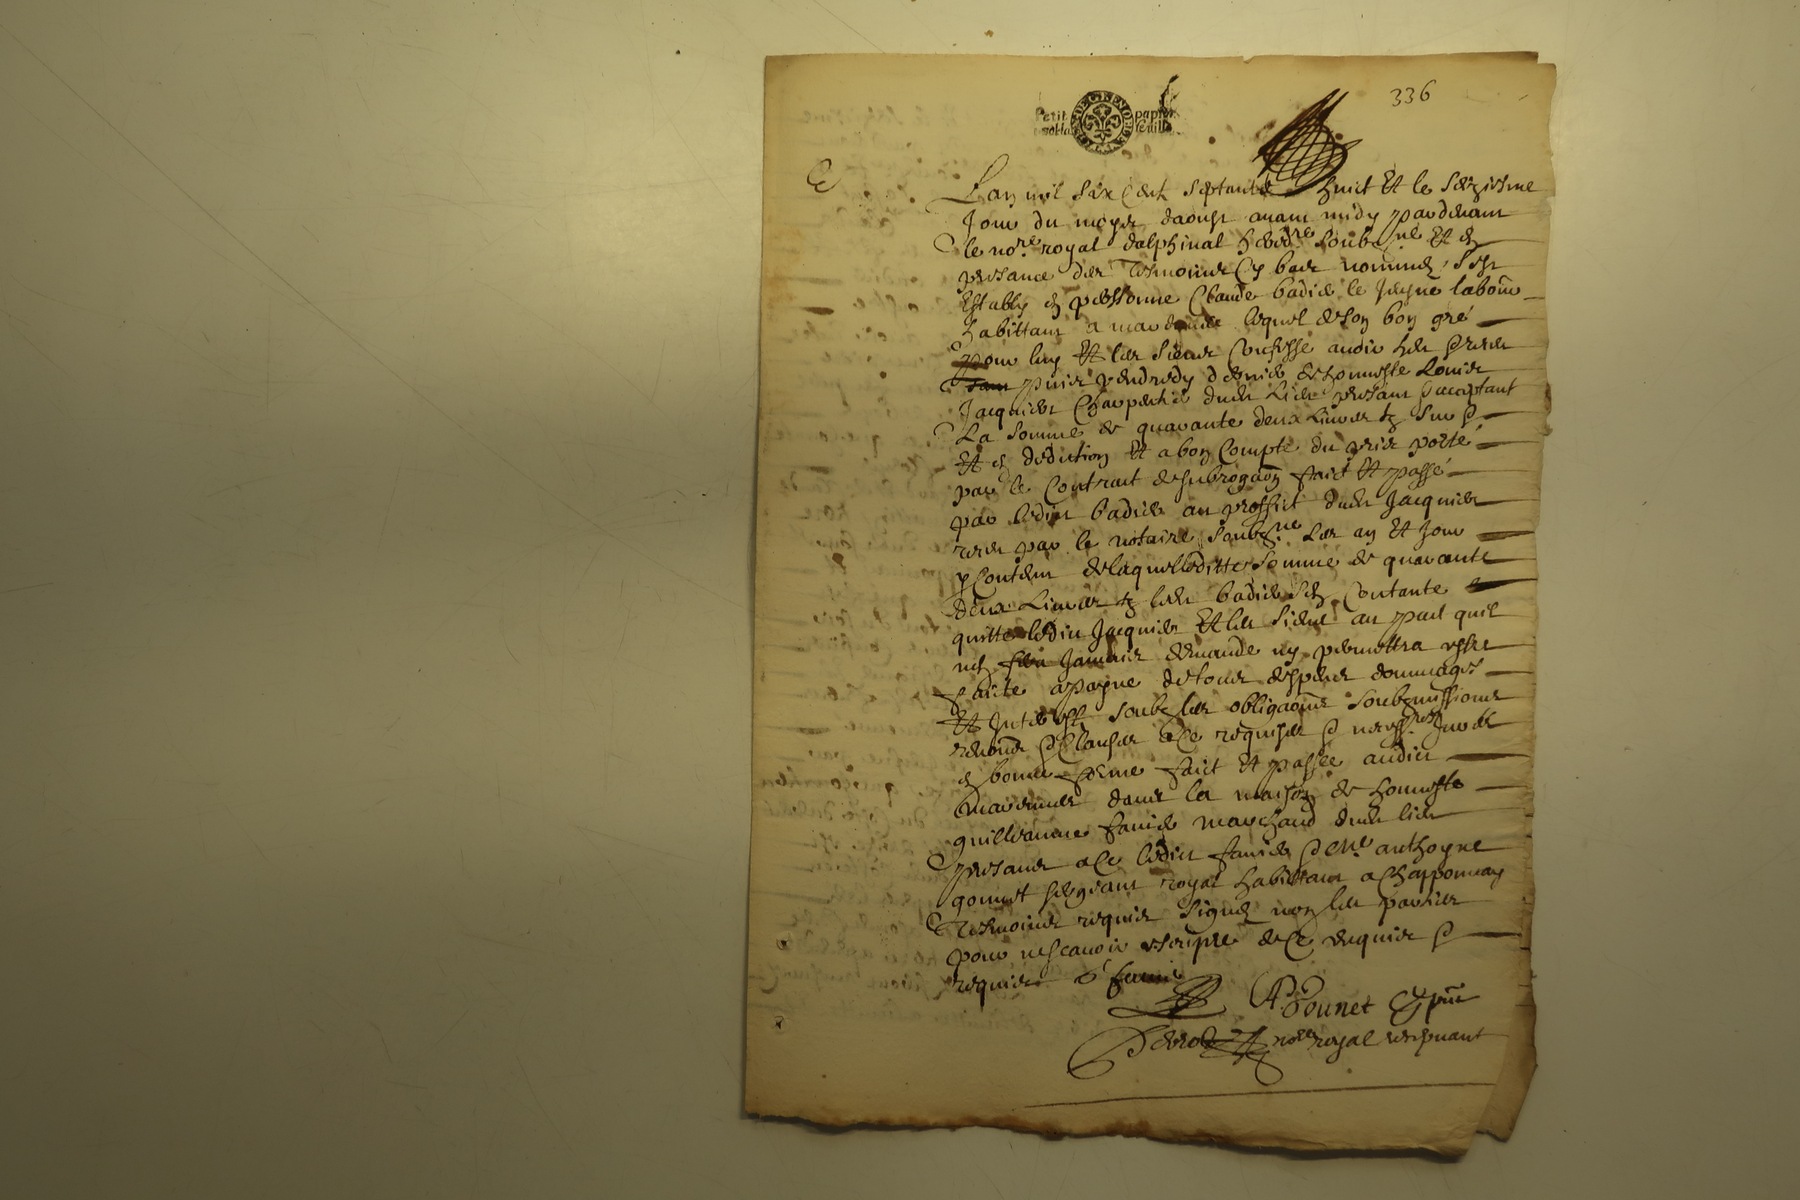 336
Petit papier
feuille
GENERALITE DE GRENOBLE
Lan mil six cent septante huict et le seziesme
Jour du moys daoust avant midy par devant
le no.re royal dalphinal soubz.ne et en
presance des tesmoins cy bas nommez sest
estably en personne Claude badie le Jeune labour
habittant a marennes lequel de son bon gré
pour luy et les siens Confesse avoir
vendredy dernier de honneste Louis
Jacquier Charpentier dudit Lieu presant & acceptant
La somme de quarante deux Livres tz sur &
et en deduction et a bon Compte du prix porté
par le Contract de subrogaon faict et passé
par ledict badie au proffict dudit Jacquier
receu par le notaire soubz.ne Les an et Jour
y Contenus de laquelleditte somme de quarante
deux Livres tz ledit badie sen Contante
quitte ledit Jacquier et les siens au pact quil
nen fera Jamais demande ny permettra estre
faicte a payne de tous despens dommages
et Interestz soubz les obligaons soubzmissions
renonc & Clauses a Ce requises & necess.res Jurées
en bonne forme faict et passé audict
marennes dans la maison de honneste
guilleaume favier marchand dudit lieu
presans a Ce ledict favier & Me anthoyne
gonnet sergeant royal habittant a Chapponnay
tesmoins requis signez non les parties
pour ne scavoir escripre de Ce enquis &
requis
A Gonnet
no.re royal